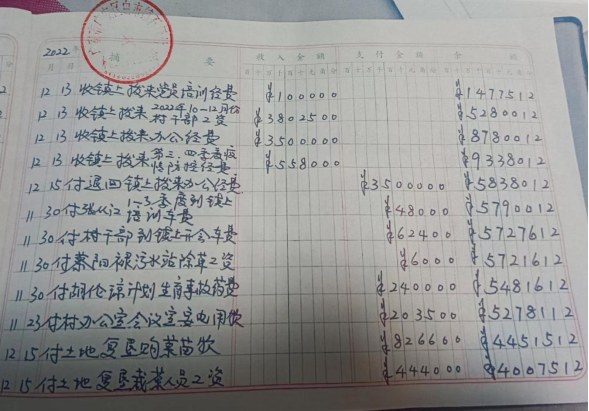 2022年 摘 要 收入金额 支付金额 余 额
月 日 百十万千百十元角分
12 13 收镇上拨来党员培训经费 ¥100000 ¥1477512
12 13 收镇上拨来2022年10-12月份村干部工资 ¥3802500 ¥5280012
12 13 收镇上拨来办公经费 ¥3500000 ¥8780012
12 13 收镇上拨来第三、四季度疫情防控经费 ¥558000 ¥9338012
12 15 付退回镇上拨来办公经费 ¥3500000 ¥5838012
11 30 付张从江1-3季度到镇上培训车费 ¥48000 ¥5790012
11 30 付村干部到镇上开会车费 ¥62400 ¥5727612
11 30 付 污水站除草工资 ¥6000 ¥5721612
11 30 付胡伦谅计划生育事故药费 ¥240000 ¥5481612
11 23 付村办公室会议室安电用饮 ¥203500 ¥5278112
12 15 付土地复垦购菜苗 ¥826600 ¥4451512
12 15 付土地复垦栽菜人员工资 ¥444000 ¥4007512